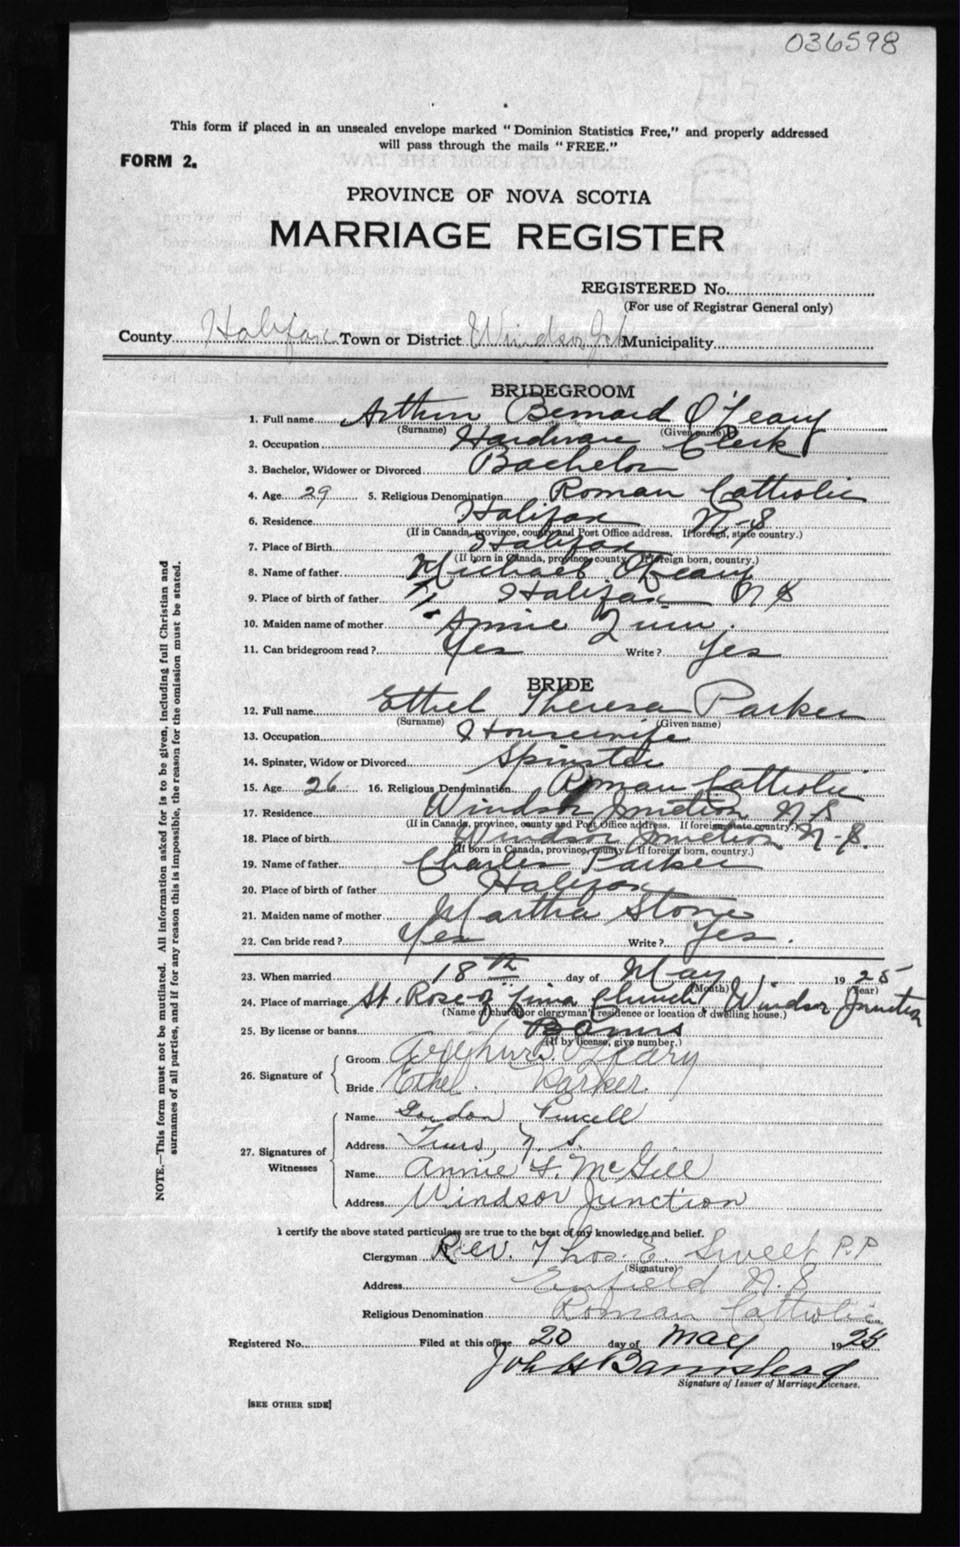 036598
This form if placed in an unsealed envelope marked "Dominion Statistics Free," and properly addressed
will pass through the mails "FREE."
FORM 2.
PROVINCE OF NOVA SCOTIA
MARRIAGE REGISTER
REGISTERED No.
(For use of Registrar General only)
County Halifax Town or District Windsor Jct Municipality
BRIDEGROOM
1. Full name Arthur Bernard O'Leary
(Surname) (Given name)
2. Occupation Hardware Clerk
3. Bachelor, Widower or Divorced Bachelor
4. Age 29 5. Religious Denomination Roman Catholic
6. Residence Halifax N.S
(If in Canada, province, county and Post Office address. If foreign, state country.)
7. Place of Birth Halifax
(If born in Canada, province, county. If foreign born, country.)
8. Name of father Michael O'Leary
9. Place of birth of father Halifax N S
10. Maiden name of mother Annie Quinn.
11. Can bridegroom read? Yes Write? Yes
BRIDE
12. Full name Ethel Theresa Parker
(Surname) (Given name)
13. Occupation Housewife
14. Spinster, Widow or Divorced Spinster
15. Age 26 16. Religious Denomination Roman Catholic
17. Residence Windsor Junction N S
(If in Canada, province, county and Post Office address. If foreign, state country.)
18. Place of birth Windsor Junction N.S.
(If born in Canada, province, county. If foreign born, country.)
19. Name of father Charles Parker
20. Place of birth of father Halifax
21. Maiden name of mother Martha Stone
22. Can bride read? Yes Write? Yes.
23. When married 18th day of May 1925
(Month) (Year)
24. Place of marriage St. Rose of Lima Church, Windsor Junction
(Name of church or clergyman's residence or location of dwelling house.)
25. By license or banns Banns
(If by license, give number.)
26. Signature of
Groom Arthur O'Leary
Bride Ethel. Parker.
27. Signatures of Witnesses
Name Gordon Purcell
Address Truro, N. S.
Name Annie F. McGill
Address Windsor Junction
I certify the above stated particulars are true to the best of my knowledge and belief.
Clergyman Rev. Thos. E. Sweet P.P
(Signature)
Address Enfield N.S
Religious Denomination Roman Catholic
Registered No. Filed at this office 20 day of May 1925
John H Barnstead
Signature of Issuer of Marriage Licenses.
[SEE OTHER SIDE]
NOTE.—This form must not be mutilated. All information asked for is to be given, including full Christian and
surnames of all parties, and if for any reason this is impossible, the reason for the omission must be stated.